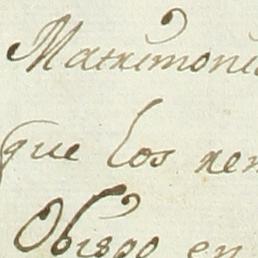 Matrimoni
que los ren
Obispo en